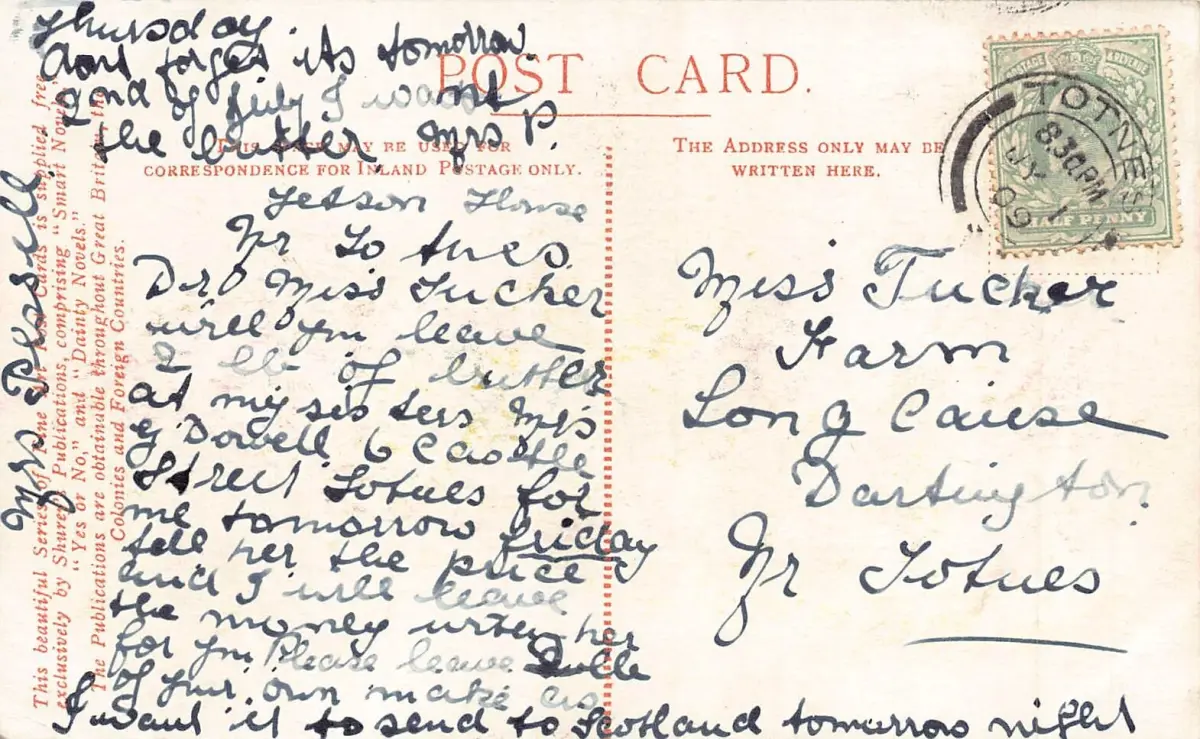 Thursday
dont forget its tomorrow
2nd of July I want
the butter Mrs P.
POST CARD.
THIS SPACE MAY BE USED FOR
CORRESPONDENCE FOR INLAND POSTAGE ONLY.
THE ADDRESS ONLY MAY BE
WRITTEN HERE.
POSTAGE REVENUE
HALF PENNY
TOTNES
8.30PM
JY 1
09
House
Nr Totnes
Dr Miss Tucker
will you leave
2 lb of butter
at my sisters Mrs
Dowell 6 Castle
Street Totnes for
me tomorrow friday
tell her the price
and I will leave
the money with her
for you Please leave
of your own make as
I want it to send to Scotland tomorrow night
Mrs
Miss Tucker
Farm
Long Cause
Dartington
Nr Totnes
This beautiful Series of Fine Art Post Cards is supplied free
exclusively by Shurey's Publications, comprising "Smart Novels,"
"Yes or No," and "Dainty Novels."
The Publications are obtainable throughout Great Britain, the
Colonies and Foreign Countries.